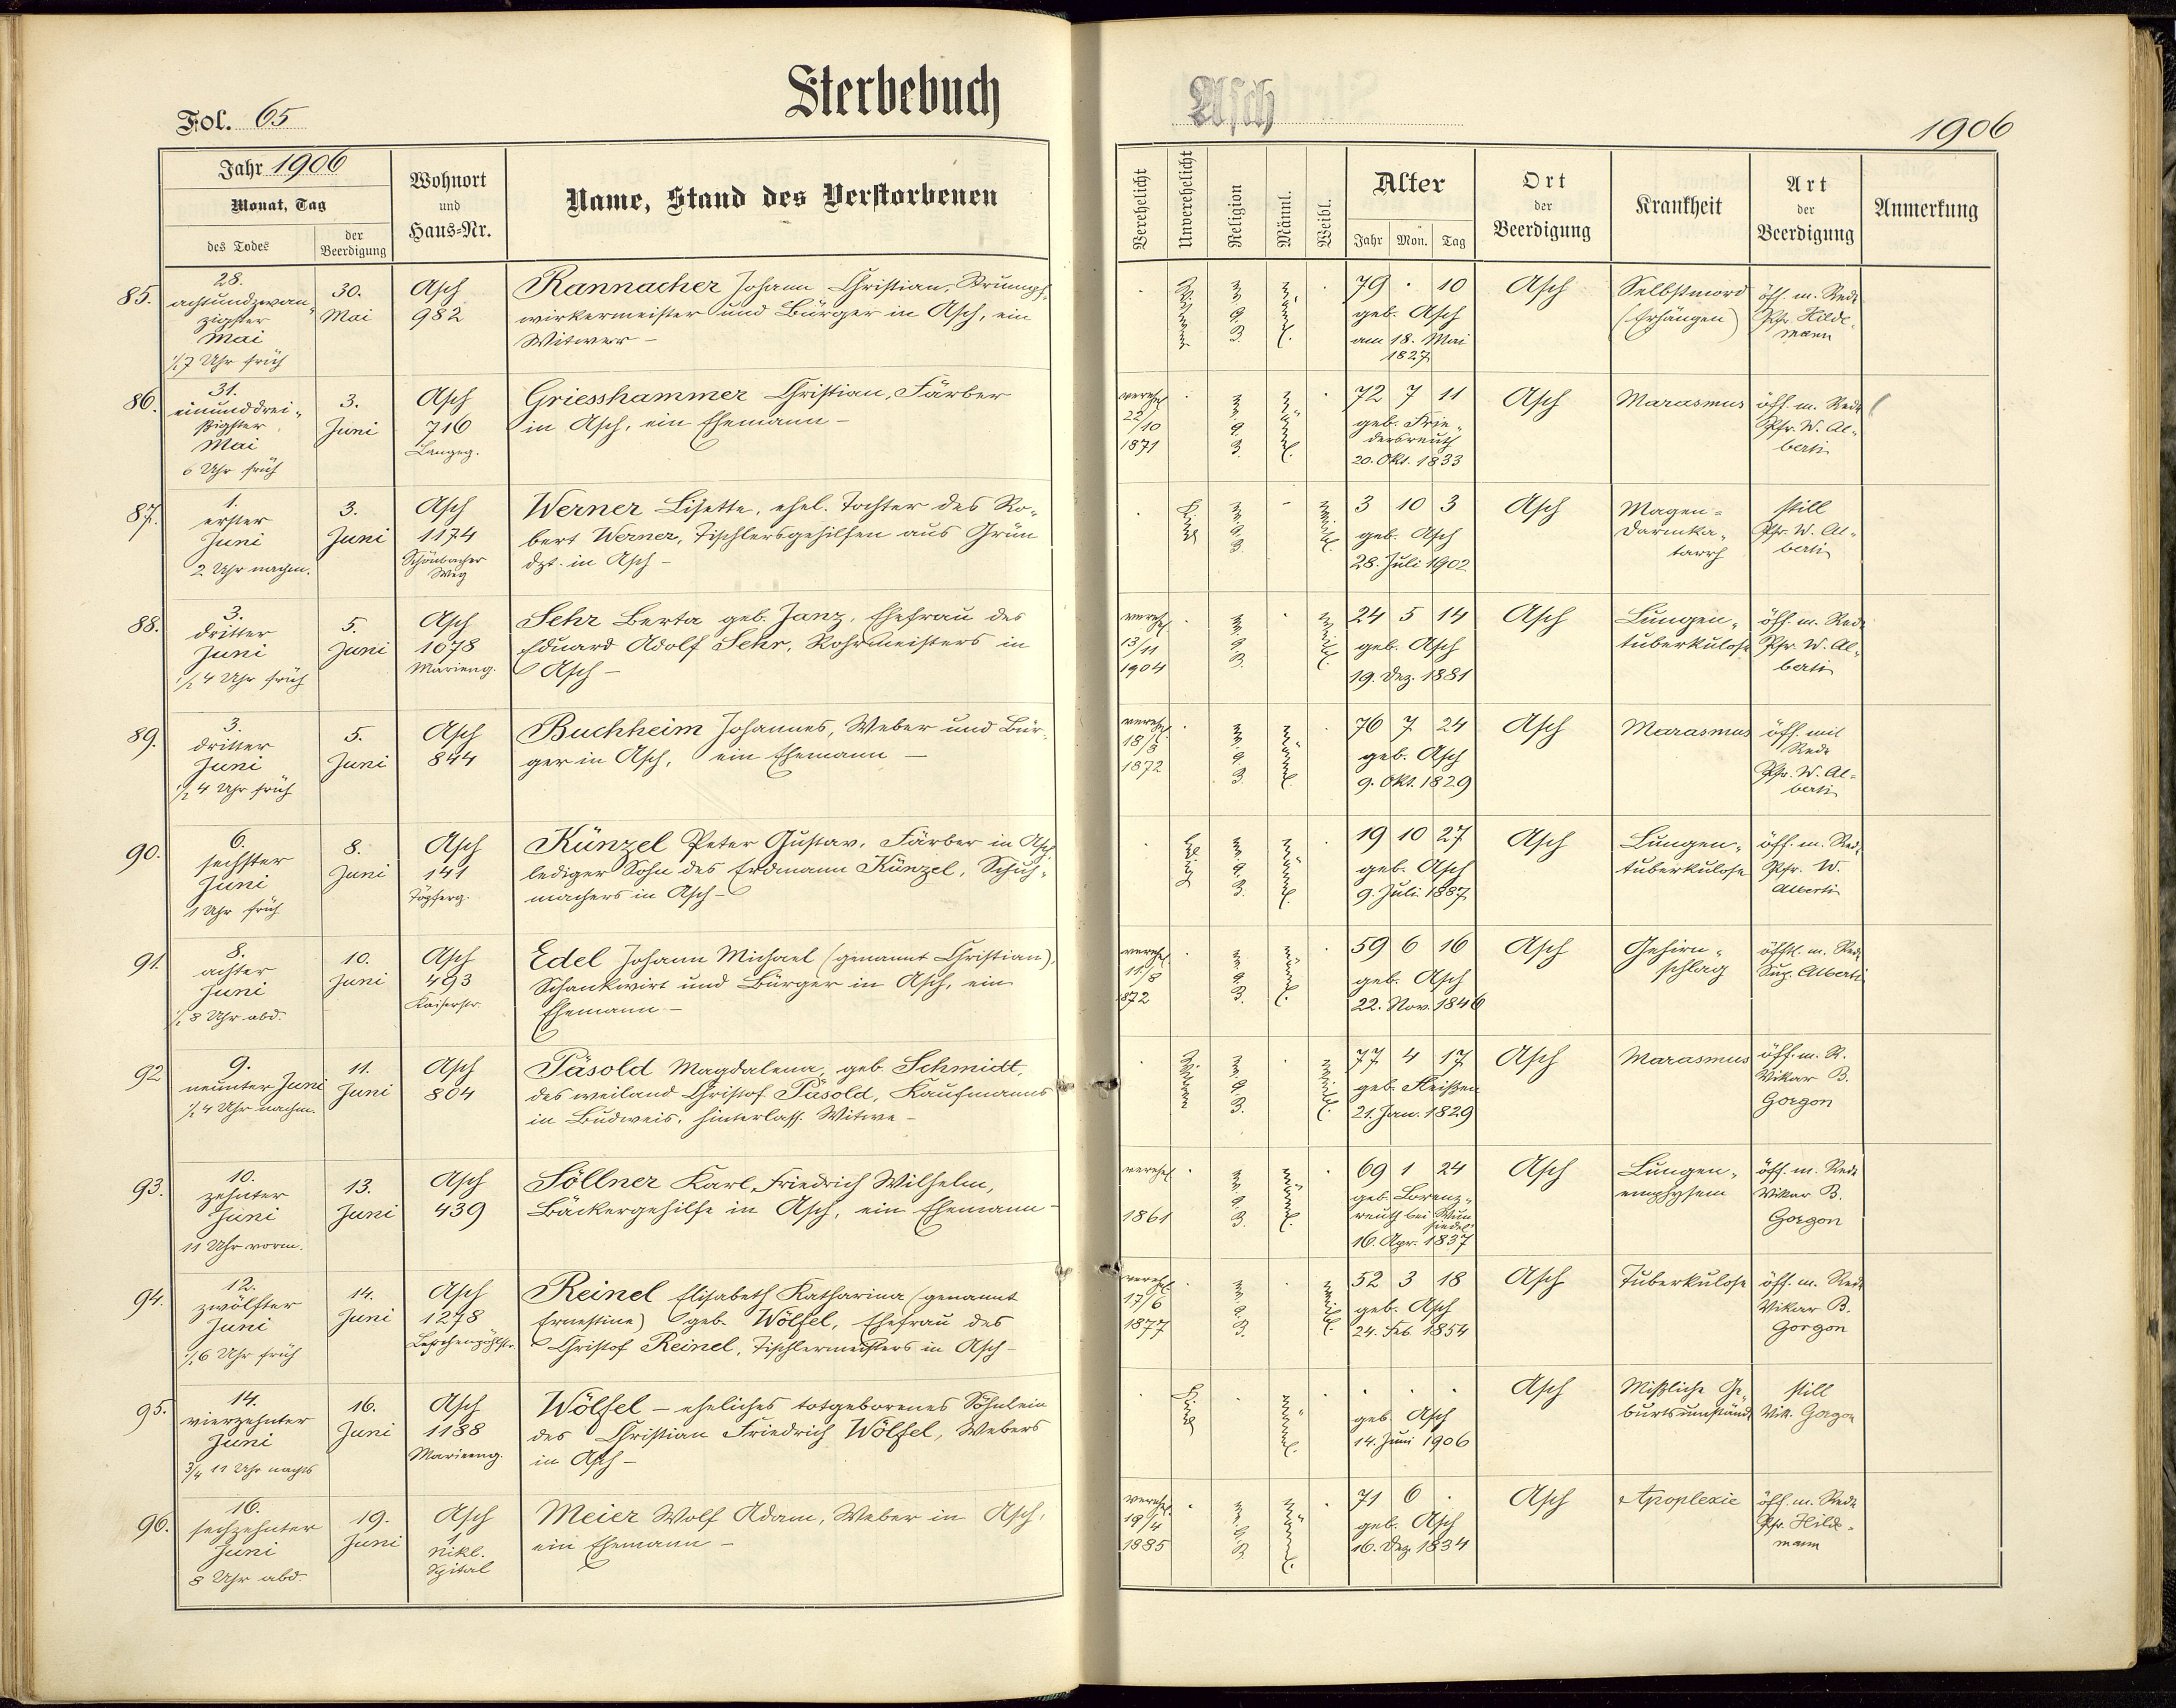 Sterbebuch
Asch
Fol. 65
1906
Jahr 1906
Monat, Tag
des Todes
der Beerdigung
Wohnort
und
Haus-Nr.
Name, Stand des Verstorbenen
Verehelicht
Unverehelicht
Religion
Männl.
Weibl.
Alter
Jahr Mon. Tag
Ort
der
Beerdigung
Krankheit
Art
der
Beerdigung
Anmerkung
85.
28.
achtundzwan-
zigster
Mai
½7 Uhr früh
30.
Mai
Asch
982
Rannacher Johann Christian, Strumpf-
wirkermeister und Bürger in Asch, ein
Witwer –
Witwer
männl.
79 · 10
geb. Asch
am 18. Mai
1827
Asch
Selbstmord
(Erhängen)
öff. m. Rede
Pfr. Hilde-
mann
86.
31.
einunddrei-
ßigster
Mai
6 Uhr früh
3.
Juni
Asch
716
Langeg.
Griesshammer Christian, Färber
in Asch, ein Ehemann –
verehel.
22/10
1871
männl.
72 7 11
geb. Frie-
dersreuth
20. Okt. 1833
Asch
Marasmus
öff. m. Rede
Pfr. W. Al-
berti
87.
1.
erster
Juni
2 Uhr nachm.
3.
Juni
Asch
1174
Schönbacher
Weg
Werner Lisette, ehel. Tochter des Ro-
bert Werner, Tischlersgehilfen aus Grün
dzt. in Asch –
Kind
weibl.
3 10 3
geb. Asch
28. Juli 1902
Asch
Magen-
Darmka-
tarrh
still
Pfr. W. Al-
berti
88.
3.
dritter
Juni
½4 Uhr früh
5.
Juni
Asch
1678
Marieng.
Sehr Berta geb. Janz, Ehefrau des
Eduard Adolf Sehr, Rohrmeisters in
Asch –
verehel.
13/11
1904
weibl.
24 5 14
geb. Asch
19. Dez. 1881
Asch
Lungen-
tuberkulose
öff. m. Rede
Pfr. W. Al-
berti
89.
3.
dritter
Juni
½4 Uhr früh
5.
Juni
Asch
844
Buchheim Johannes, Weber und Bür-
ger in Asch, ein Ehemann –
verehel.
18/8
1872
männl.
76 7 24
geb. Asch
9. Okt. 1829
Asch
Marasmus
öff. mit
Rede
Pfr. W. Al-
berti
90.
6.
sechster
Juni
1 Uhr früh
8.
Juni
Asch
141
Töpferg.
Künzel Peter Gustav, Färber in Asch
lediger Sohn des Erdmann Künzel, Schuh-
machers in Asch –
ledig
männl.
19 10 27
geb. Asch
9. Juli 1887
Asch
Lungen-
tuberkulose
öff. m. Rede
Pfr. W.
Alberti
91.
8.
achter
Juni
½8 Uhr abd.
10.
Juni
Asch
493
Kaiserstr.
Edel Johann Michael (genannt Christian),
Schankwirt und Bürger in Asch, ein
Ehemann –
verehel.
11/8
872
männl.
59 6 16
geb. Asch
22. Nov. 1846
Asch
Gehirn-
schlag
öfftl. m. Rede
Sup. Alberti
92
9.
neunter Juni
½4 Uhr nachm.
11.
Juni
Asch
804
Päsold Magdalena, geb. Schmidt,
des weiland Christof Päsold, Kaufmanns
in Budweis, hinterlass. Witwe –
Witwe
weibl.
77 4 17
geb. Fleißen
21. Jan. 1829
Asch
Marasmus
öff. m. R.
Vikar B.
Gorgon
93.
10.
zehnter
Juni
11 Uhr vorm.
13.
Juni
Asch
439
Söllner Karl, Friedrich Wilhelm,
Bäckergehilfe in Asch, ein Ehemann –
verehel.
1861
männl.
69 1 24
geb. Lorenz-
reuth bei Wun-
siedel
16. Apr. 1837
Asch
Lungen-
emphysem
öff. m. Rede
Vikar B.
Gorgon
94.
12.
zwölfter
Juni
½6 Uhr früh
14.
Juni
Asch
1278
Reinel Elisabeth Katharina (genannt
Ernestine) geb. Wölfel, Ehefrau des
Christof Reinel, Tischlermeisters in Asch –
verehel.
17/6
1877
weibl.
52 3 18
geb. Asch
24. Feb. 1854
Asch
Tuberkulose
öff. m. Rede
Vikar B.
Gorgon
95.
14.
vierzehnter
Juni
¾ 11 Uhr nachts
16.
Juni
Asch
1188
Marieng.
Wölfel – eheliches totgeborenes Söhnlein
des Christian Friedrich Wölfel, Webers
in Asch –
Kind
männl.
geb. Asch
14. Juni 1906
Asch
Mißliche Ge-
burtsumstände
still
Vik. Gorgon
96.
16.
sechzehnter
Juni
8 Uhr abd.
19.
Juni
Asch
Nikl.
Spital
Meier Wolf Adam, Weber in Asch,
ein Ehemann –
verehel.
19/4
1885
männl.
71 6 ·
geb. Asch
16. Dez 1834
Asch
Apoplexie
öff. m. Rede
Pfr. Hilde-
mann